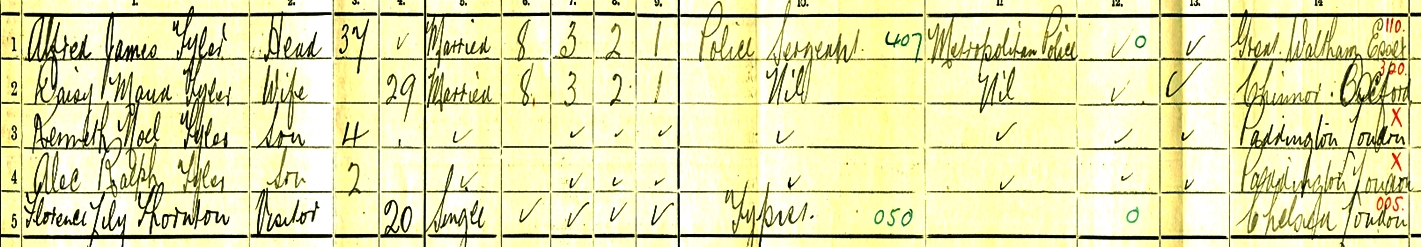 1. 2. 3. 4. 5. 6. 7. 8. 9. 10. 11 12. 13. 14
1 Alfred James Tyler Head 37 ✓ Married 8 3 2 1 Police Sergeant 407 Metropolitan Police ✓ 0 ✓ Great Waltham Essex 110.
2 Daisy Maud Tyler Wife 29 Married 8. 3 2 1 Nil Nil ✓ ✓ Chinnor. Oxford 320.
3 Kenneth Noel Tyler Son 4 . ✓ ✓ ✓ ✓ ✓ ✓ ✓ ✓ Paddington London X
4 Alec Ralph Tyler Son 2 ✓ ✓ ✓ ✓ ✓ ✓ ✓ ✓ Paddington London X
5 Florence Lily Thornton Visitor 20 Single ✓ ✓ ✓ ✓ Typist. 050 0 Chelsea London 005.